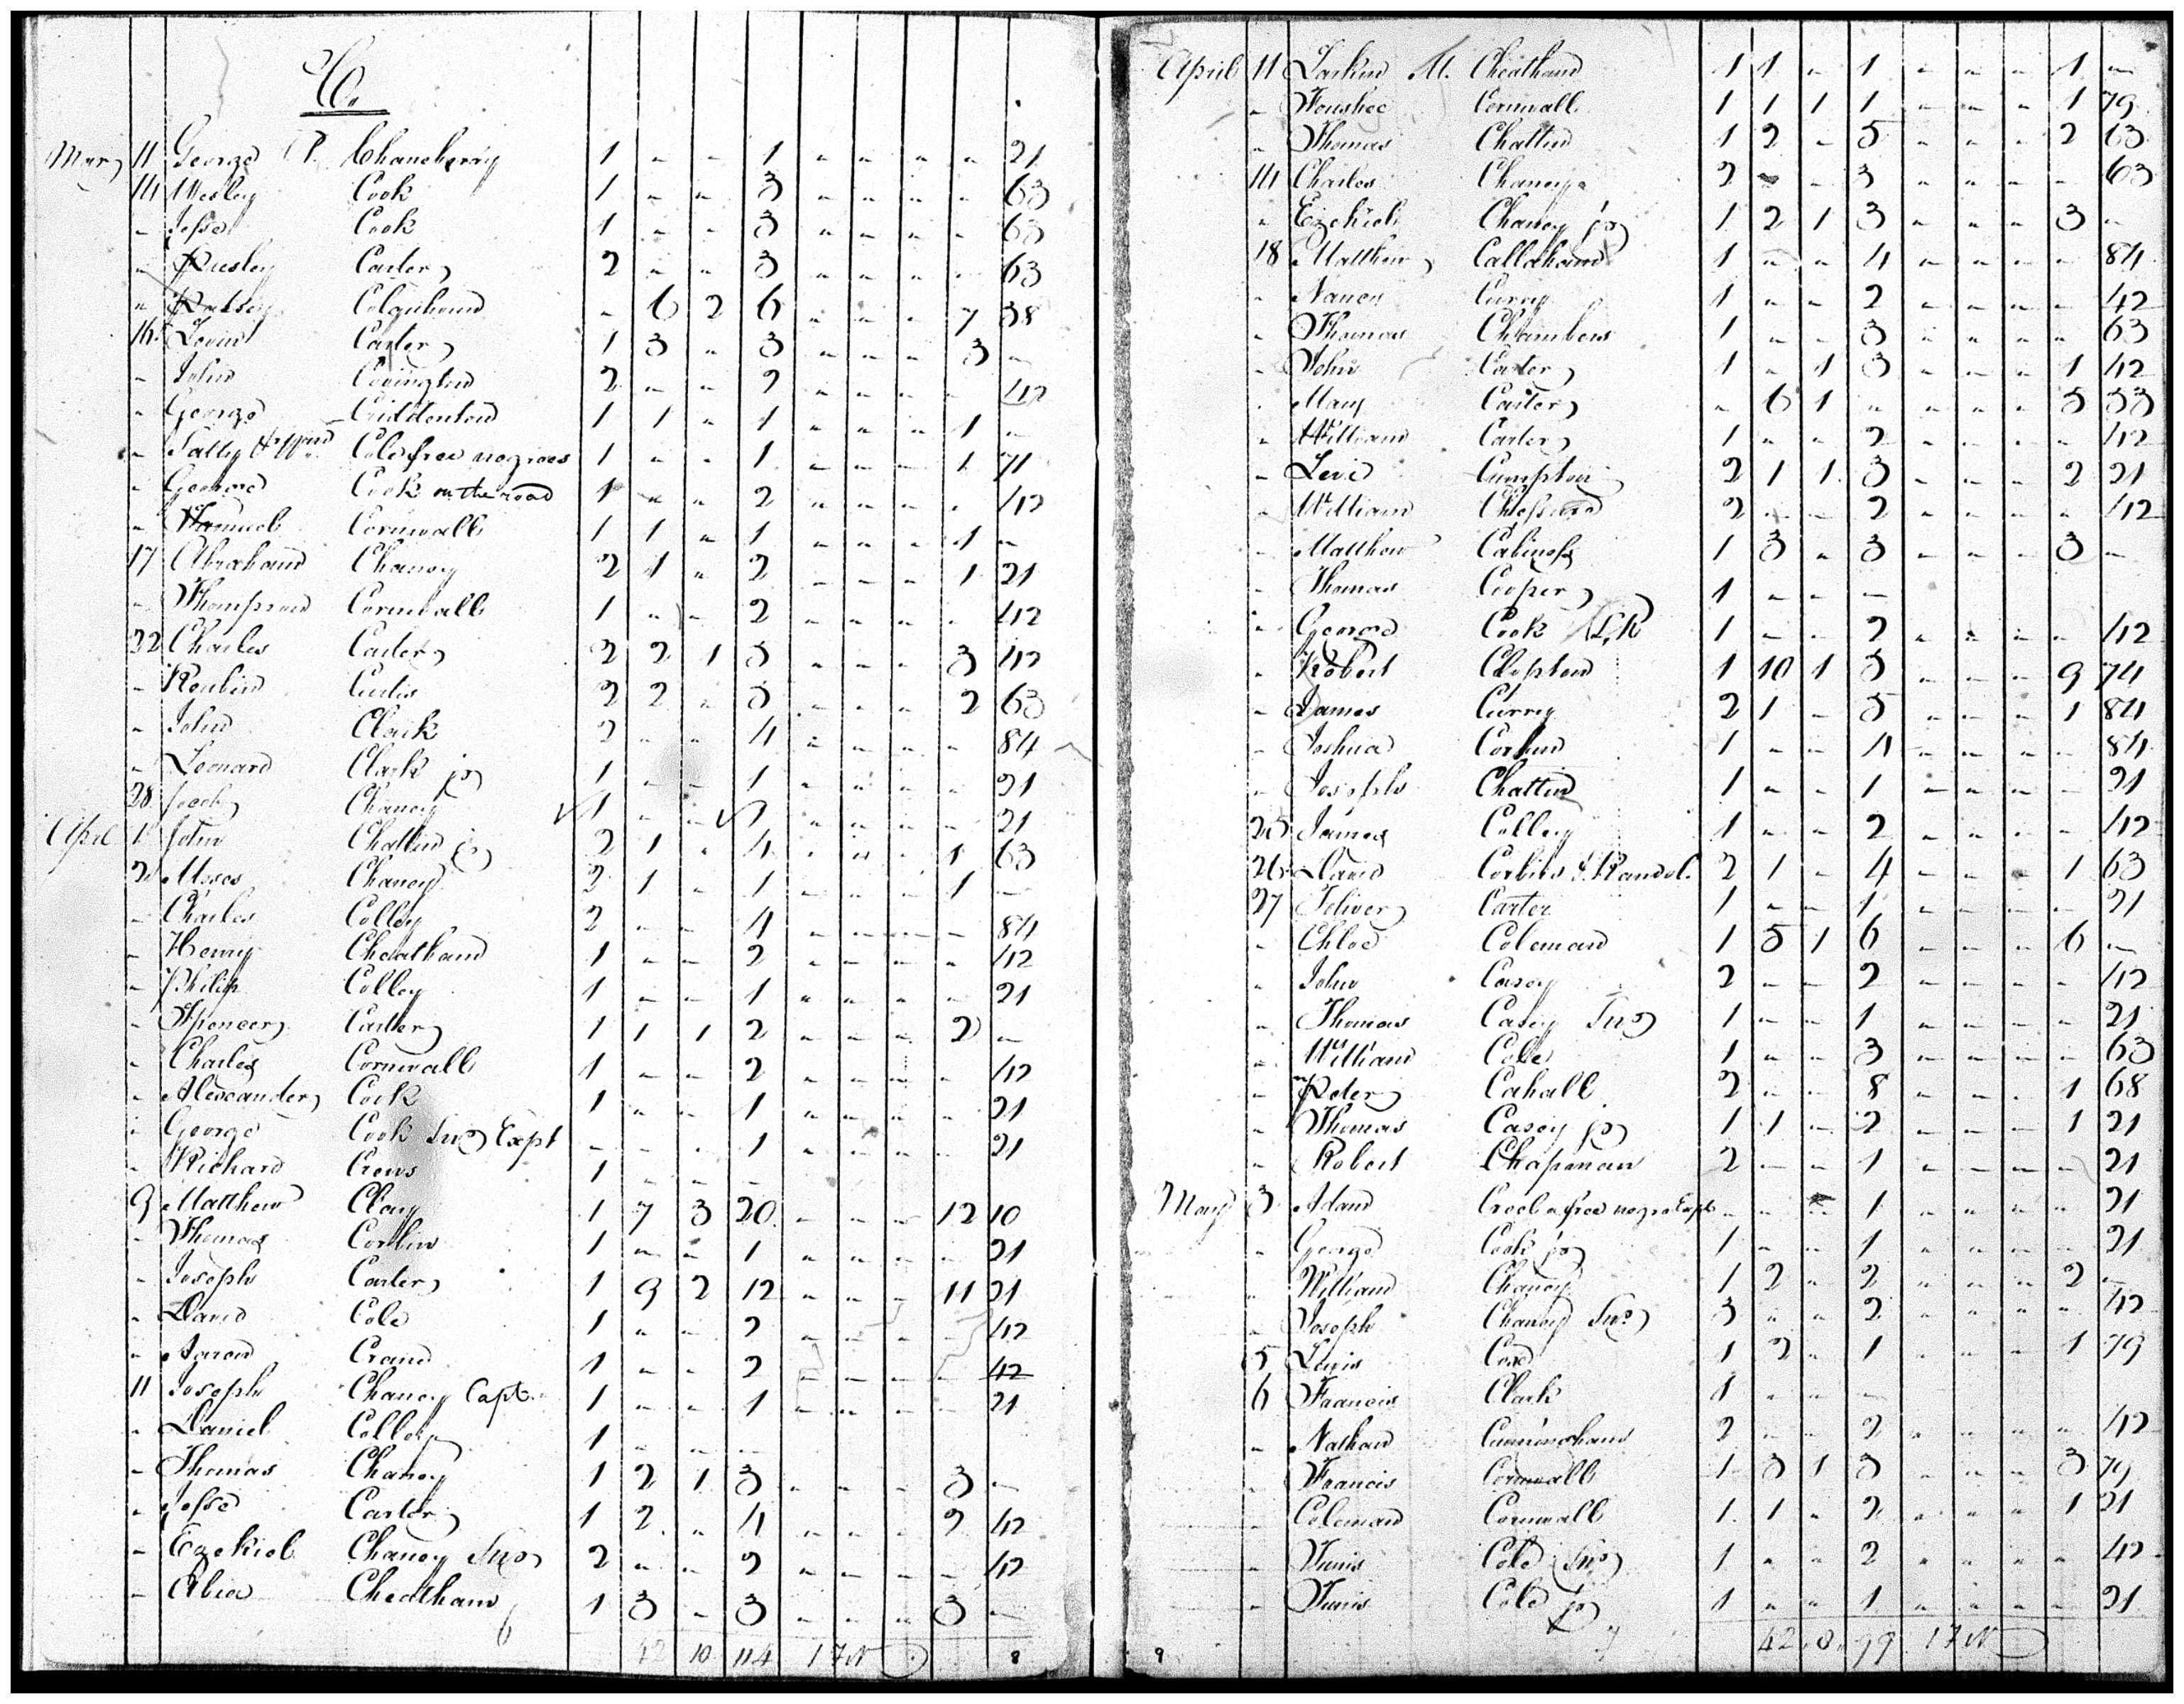 C.
Mar 11 George Chancharay 1 " " 1 " " " " 21
14 Wesley Cook 1 " " 3 " " " " 63
" Jesse Cook 1 " " 3 " " " " 63
" Presley Carter 2 " " 3 " " " " 63
" Colquhoun " 6 2 6 " " " 7 38
16 Levin Carter 1 3 " 3 " " " 3 "
" John Covington 2 " " 2 " " " " 42
" George Criddenton 1 1 " 1 " " " 1 "
" Sally Cole free negroes 1 " " 1 " " " 1 71
" George Cook on the road 1 " " 2 " " " " 42
" Samuel Cornwall 1 1 " 1 " " " 1 "
17 Abraham Chaney 2 1 " 2 " " " 1 21
" Thompson Cornwall 1 " " 2 " " " " 42
22 Charles Carter 2 2 1 5 " " " 3 42
" Reubin Curtis 2 2 " 5 " " " 2 63
" John Clark 2 " " 4 " " " " 84
" Leonard Clark jr 1 " " 1 " " " " 21
28 Jacob Chaney 1 " " 1 " " " " 21
April 1 John Chattin jr 2 1 " 4 " " " 1 63
2 Moses Chaney 2 1 " 1 " " " 1 "
" Charles Colley 2 " " 4 " " " " 84
" Henry Cheatham 1 " " 2 " " " " 42
" Philip Colley 1 " " 1 " " " " 21
" Spencer Carter 1 1 1 2 " " " 2 "
" Charles Cornwall 1 " " 2 " " " " 42
" Alexander Cook 1 " " 1 " " " " 21
" George Cook Snr Expt " " " 1 " " " " 21
" Richard Crews 1 " " "
9 Matthew Clay 1 7 3 20 " " " 12 10
" Thomas Corbin 1 " " 1 " " " " 21
" Joseph Carter 1 9 2 12 " " " 11 21
" David Cole 1 " " 2 " " " " 42
" Aaron Crane 1 " " 2 " " " " 42
11 Joseph Chaney Capt. 1 " " 1 " " " " 21
" Daniel Colley 1 " " "
" Thomas Chaney 1 2 1 3 " " " 3 "
" Jesse Carter 1 2 " 4 " " " 2 42
" Ezekiel Chaney Snr 2 " " 2 " " " " 42
" Abia Cheatham 1 3 " 3 " " " 3 "
42 10 114 8
April 11 Larkin M. Cheatham 1 1 " 1 " " " 1 "
" Foushee Cornwall 1 1 1 1 " " " 1 79
" Thomas Chattin 1 2 " 5 " " " 2 63
14 Charles Chaney 2 " " 3 " " " " 63
" Ezekiel Chaney jr 1 2 1 3 " " " 3 "
18 Matthew Callaham 1 " " 4 " " " " 84
" Nancy Curry 1 " " 2 " " " " 42
" Thomas Chambers 1 " " 3 " " " " 63
" John Carter 1 " 1 3 " " " 1 42
" Mary Carter " 6 1 " " " " 5 53
" William Carter 1 " " 2 " " " " 42
" Levi Cumpton 2 1 1 3 " " " 2 21
" William 2 " " 2 " " " " 42
" Matthew Cabiness 1 3 " 3 " " " 3 "
" Thomas Cooper 1 " " "
" George Cook 1 " " 2 " " " " 42
" Robert Clopton 1 10 1 5 " " " 9 74
" James Curry 2 1 " 5 " " " 1 84
" Joshua Corbin 1 " " 4 " " " " 84
" Joseph Chattin 1 " " 1 " " " " 21
25 James Colley 1 " " 2 " " " " 42
26 David Corbin 2 1 " 4 " " " 1 63
27 Toliver Carter 1 " " 1 " " " " 21
" Chloe Coleman 1 5 1 6 " " " 6 "
" John Casey 2 " " 2 " " " " 42
" Thomas Casey Snr 1 " " 1 " " " " 21
" William Cole 1 " " 3 " " " " 63
" Peter Cahall 2 " " 8 " " " 1 68
" Thomas Casey jr 1 1 " 2 " " " 1 21
" Robert Chapman 2 " " 1 " " " " 21
May 3 Adam a free negro Expt " " " 1 " " " " 21
" George Cook jr 1 " " 1 " " " " 21
" William Chaney 1 2 " 2 " " " 2 "
" Joseph Chaney Snr 3 " " 2 " " " " 42
5 Lewis Cox 1 2 " 1 " " " 1 79
6 Francis Clark 1 " " "
" Nathan Cunningham 2 " " 2 " " " " 42
" Francis Cornwall 1 3 1 3 " " " 3 79
" Coleman Cornwall 1 1 " 2 " " " 1 21
" Tunis Cole Snr 1 " " 2 " " " " 42
" Tunis Cole jr 1 " " 1 " " " " 21
9 42 8 99